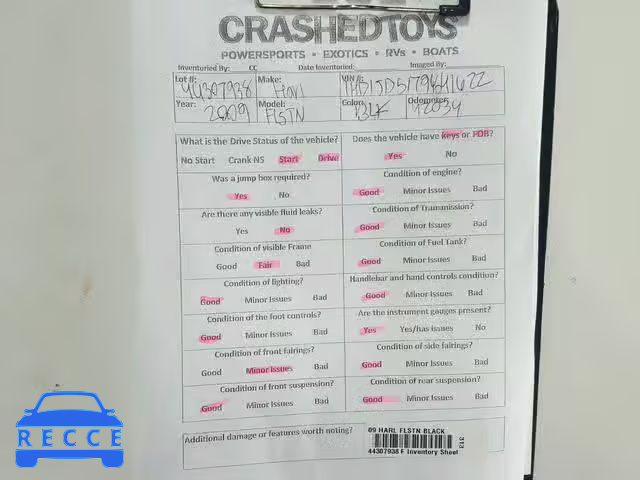 CRASHEDTOYS
POWERSPORTS • EXOTICS • RVs • BOATS
Inventoried By: CC Date Inventoried: Imaged By:
Lot #: 44307938 Make: Harl VIN #:
Year: 2009 Model: FLSTN Color: BLK Odometer: 42034
What is the Drive Status of the vehicle? Does the vehicle have keys or FOB?
No Start Crank NS Start Drive Yes No
Was a jump box required? Condition of engine?
Yes No Good Minor Issues Bad
Are there any visible fluid leaks? Condition of Transmission?
Yes No Good Minor Issues Bad
Condition of visible Frame Condition of Fuel Tank?
Good Fair Bad Good Minor Issues Bad
Condition of lighting? Handlebar and hand controls condition?
Good Minor Issues Bad Good Minor Issues Bad
Condition of the foot controls? Are the instrument gauges present?
Good Minor Issues Bad Yes Yes/has issues No
Condition of front fairings? Condition of side fairings?
Good Minor Issues Bad Good Minor Issues Bad
Condition of front suspension? Condition of rear suspension?
Good Minor Issues Bad Good Minor Issues Bad
Additional damage or features worth noting? 09 HARL FLSTN BLACK
313
44307938 F Inventory Sheet
RECCE